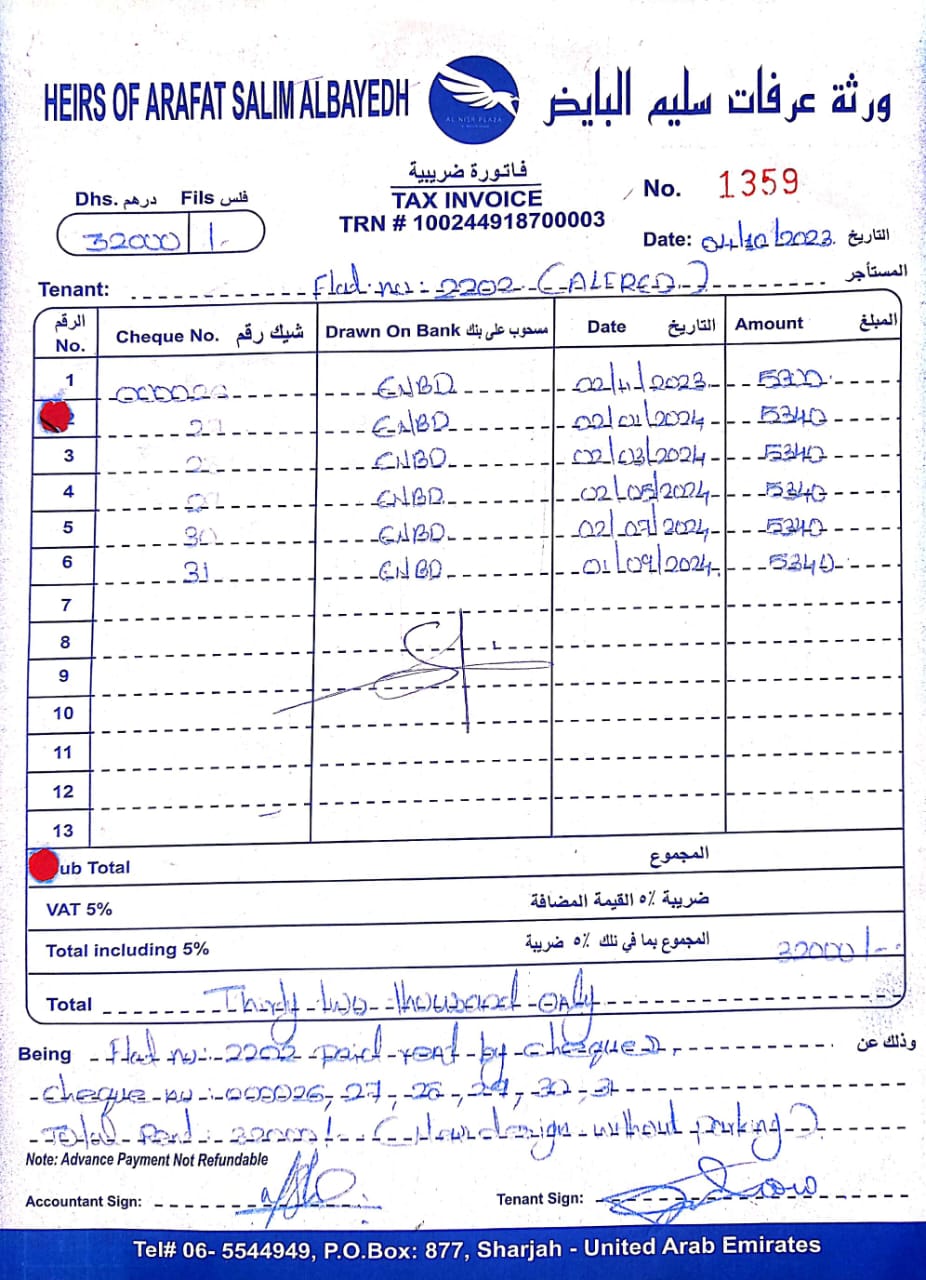 HEIRS OF ARAFAT SALIM ALBAYEDH
AL NISR PLAZA
ورثة عرفات سليم البايض
فاتورة ضريبية
TAX INVOICE
TRN # 100244918700003
No. 1359
Dhs. درهم Fils فلس
32000 /-
Date: 04/10/2023 التاريخ
Tenant: Flat no: 2202 (ALFRED) المستأجر
الرقم No. Cheque No. شيك رقم Drawn On Bank مسحوب على بنك Date التاريخ Amount المبلغ
1 ENBD 02/11/2023
2 27 ENBD 02/01/2024 5340
3 ENBD 02/03/2024 5340
4 ENBD 02/05/2024 5340
5 30 ENBD 02/07/2024 5340
6 31 ENBD 01/09/2024 5340
7
8
9
10
11
12
13
ub Total المجموع
VAT 5% ضريبة ٥٪ القيمة المضافة
Total including 5% المجموع بما في تلك ٥٪ ضريبة 32000/-
Total Thirty two thousand only
Being Flat no: 2202 paid rent by cheques, وذلك عن
cheque no: 000026, 27, 28, 29, 30, 31
Total Rent: 32000/- without parking)
Note: Advance Payment Not Refundable
Accountant Sign:
Tenant Sign:
Tel# 06- 5544949, P.O.Box: 877, Sharjah - United Arab Emirates